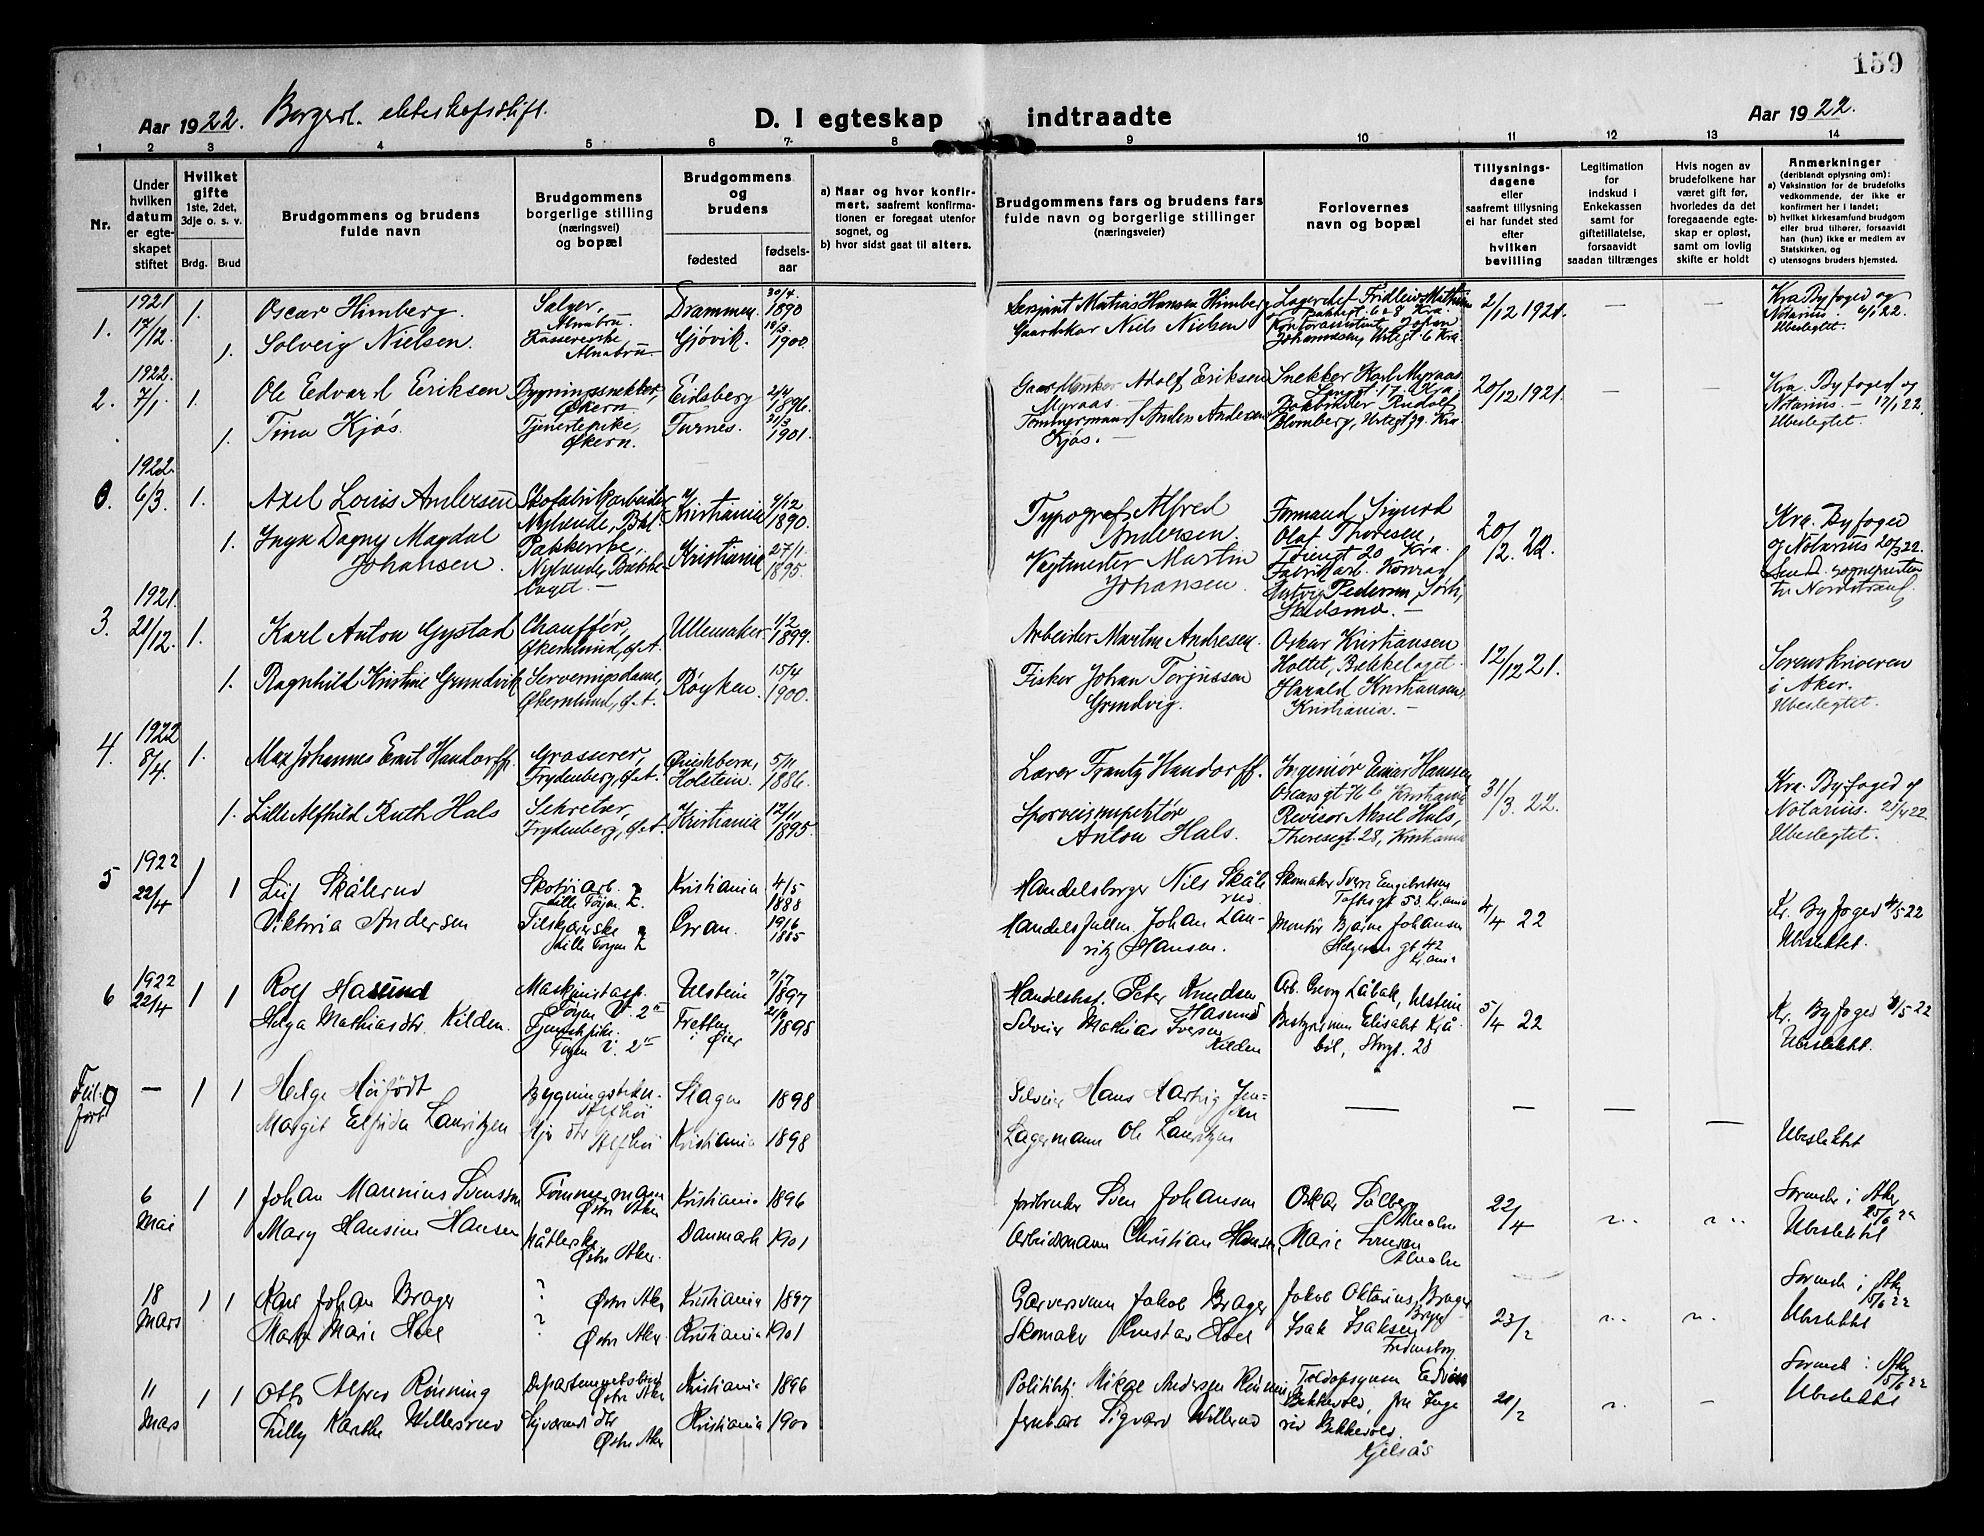 159
Aar 1922. Borgerl. ekteskapsstift.
D. I egteskap indtraadte
Aar 1922.
1 2 3 4 5 6 7 8 9 10 11 12 13 14
Nr.
Under hvilken datum er egteskapet stiftet
Hvilket gifte 1ste, 2det, 3dje o. s. v.
Brdg. Brud
Brudgommens og brudens fulde navn
Brudgommens borgerlige stilling (næringsvei) og bopæl
Brudgommens og brudens
fødested
fødselsaar
a) Naar og hvor konfirmert, saafremt konfirmationen er foregaat utenfor sognet, og
b) hvor sidst gaat til alters.
Brudgommens fars og brudens fars fulde navn og borgerlige stillinger (næringsveier)
Forlovernes navn og bopæl
Tillysningsdagene eller saafremt tillysning ei har fundet sted efter hvilken bevilling
Legitimation for indskud i Enkekassen samt for giftetillatelse, forsaavidt saadan tiltrænges
Hvis nogen av brudefolkene har været gift før, hvorledes da det foregaaende egteskap er opløst, samt om lovlig skifte er holdt
Anmerkninger (deriblandt oplysning om):
a) Vaksinstion for de brudefolks vedkommende, der ikke er konfirmert her i landet;
b) hvilket kirkesamfund brudgom eller brud tilhører, forsaavidt han (hun) ikke er medlem av Statskirken, og
c) utensogns bruders hjemsted.
1. 1921 17/12. 1. Oscar Himberg. Selger, Alnabru. Drammen. 30/4 1890
Sersjant Matias Hansen Himberg
2/12 1921. — —
Kra Byfoged og Notarius. 6/1 22. Ubeslegtet.
1. Solveig Nielsen. Kassererske Alnabru Gjøvik. 1900.
Gaardskar Niels Nielsen
2. 1922. 7/1. 1. Ole Edvard Eriksen Bygningssnekker, Økern Eidsberg 1896.
Adolf Eriksen Myraas. —
Snekker Karl Myraas
20/12 1921. — —
Kra. Byfoged og Notarius — 17/1 22. Ubeslegtet.
1. Tina Kjós. Tjenestepike, Økern. Furnes. 21/3 1901.
Tømmermand Anders Andersen Kjós. —
Bokbinder Rudolf Blomberg, Urtegt 39. Kra
0. 1922. 6/3. 1. Axel Louis Andersen Skofabrikarbeider Nylænde, Bkl. Kristiania 4/12 1890.
Typograf Alfred Andersen.
Formand Sigurd Olaf Thoresen, 20 Kra.
20/12. 22.
Kra. Byfoged og Notarius 20/3 22. sognepresten til Nordstrand.
1. Inga Dagny Magdal Johansen. Pakkerske, Nylænde, Bækkelaget. — Kristiania 27/1 1895.
Vegtmester Martin Johansen.
Fabrikarb. Konrad Ludvig Pedersen, Skedsmo. —
3. 1921. 21/12. 1. Karl Anton Gystad Chauffør, Økernlund, Ø.A. Ullensaker 1/2 1899.
Arbeider Martin Andresen.
Oskar Kristiansen Holtet, Bækkelaget.
12/12 21.
Sorenskriveren i Aker. Ubeslegtet.
1. Ragnhild Kristine Grundvik Serveringsdame, Økernlund, Ø.A. Røyken. 15/4 1900.
Fisker Johan Torjussen Grundvig.
Harald Kristiansen, Kristiania. —
4. 1922 8/4. 1. Max Johannes Ernst Handorff. Grosserer, Frydenberg, Ø.A. Holstein. 5/11 1886.
Lærer Frantz Handorff.
Ingeniør Einar Hanssen Oscarsgt 76 b Kristiania
31/3. 22.
Kra. Byfoged og Notarius. 21/4 22 Ubeslegtet.
1. Lille Alfhild Ruth Hals Sekretær, Frydenberg, Ø.A. Kristiania 12/11 1895.
Sporveisinspektør Anton Hals.
Revisor Aksel Hals, Theresegt. 28, Kristiania
5 1922 22/4 1 1 Leif Skålerud Skotøiarb. Lille Tøyen Kristiania 4/5 1888
Handelsborger Nils Skålerud
Skomaker Sven Engebretsen Toftesgt 53. Kr.ania
4/4 22
Kr. Byfoged 4/5 22 Ubeslektet.
Viktoria Andersen Tilskjærerske Lille Tøyen Gran. 1885
Handelsfullm. Johan Lauritz Hansen.
Montør Bjarne Johansen Helgesens gt 42 Kr.ania
6 1922 22/4 1 1 Rolf Hasund Maskinistassi. Tøyen V. Ulstein 7/7 1897
Handelsbest. Peter Knudsen Hasund
Arb. Georg Låbak, Ulstein
5/4 22
Kr. Byfoged 4/5 22 Ubeslektet.
Helga Mathiasdtr Kilden. Tjenestepike. Tøyen V. Fretten, Øier 1898
Selveier Mathias Iversen Kilden
Bestyrerinne Elisabet Kråbøl, Storgt. 28
Feilført — 1 1 Helge Høifødt Skagen 1898
Selveier Hans Hartvig Jensen
— — —
Margit Elfrida Lauritzen Kristiania 1898
Lagermann Ole Lauritzen
— Ubeslektet
6 Mai 1 1 Johan Marinius Svensson Tømmermann Østre Aker Kristiania 1896
Jordbruker Sven Johansen
Oskar Solberg
22/4
Sorensk i Aker 25/6 22 Ubeslektet
Mary Hansine Hansen Østre Aker. Danmark 1901
Arbeidsmann Christian Hansen,
Marie
18 Mars 1 1 Karl Johan Brager ? Østre Aker Kristiania 1897
Garversvenn Jakob Brager
Jakob Oktavius Brager Bryn
23/2
Sorensk i Aker 15/6 22 Ubeslektet
Marie Hoel ? Østre Aker Kristiania 1901
Skomaker Gustav Hoel
Isak Isaksen Fredensborg
11 Mars 1 1 Otto Alfred Rønning Departementsbud Østre Aker Kristiania 1896
Politibtj. Mikael Andersen Rønning
Edvin Bekkevold, fru Inge
21/2 —
Sorensk i Aker 15/6 22 Ubeslektet
Lilly Kathe Willerud Østre Aker Kristiania 1900
Jernbarb. Sigvard Willerud
Bekkevold. Kjelsås